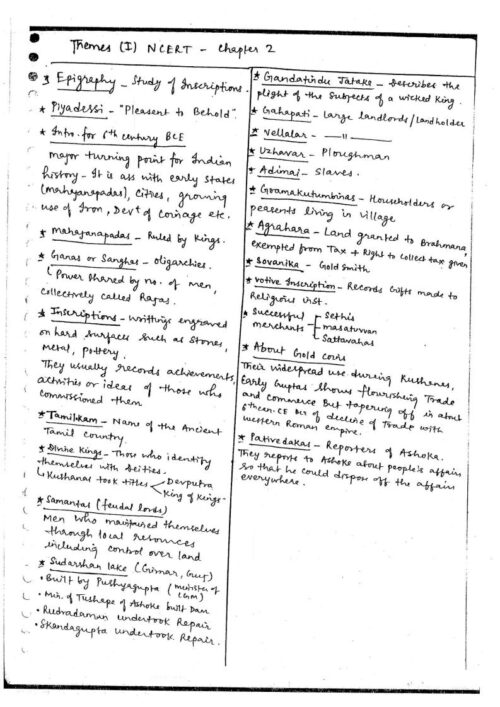 Themes (I) NCERT - Chapter 2
* Epigraphy - Study of Inscriptions.
* Piyadessi - "Pleasent to Behold".
* Intro. for 6th century BCE
major turning point for Indian
history - It is ass with early states
(mahajanapadas), cities, growing
use of Iron, Devt of coinage etc.
* Mahajanapadas - Ruled by Kings.
* Ganas or Sanghas - oligarchies.
Power shared by no. of men,
collectively called Rajas.
* Inscriptions - writtings engraved
on hard surfaces such as stones,
metal, pottery.
They usually records achievements,
activities or ideas of those who
commissioned them
* Tamilkam - Name of the Ancient
Tamil country.
* Divine Kings - Those who identify
themselves with deities.
Kushanas took titles Devputra
King of Kings
* Samantas (feudal lords)
Men who maintained themselves
through local resources
including control over land
* Sudarshan lake (Girnar, Guj)
• Built by Pushyagupta (minister of CGM)
• Min. of Tushape of Ashoke built Dam
• Rudradaman undertook Repair
• Skandagupta undertook Repair.
* Gandatindu Jataka - Describes the
plight of the subjects of a wicked king.
* Gahapati - Large landlords/landholder
* Vellalar - —11—
* Uzhavar - Ploughman
* Adimai - Slaves.
* Gramakutumbinas - Householders or
peasents living in village
* Agrahara - Land granted to Brahmana,
exempted from Tax + Right to collect tax given
* Sovanika - Gold smith
* Votive Inscription - Records Gifts made to
Religious inst.
* Successful merchants Sethis
masatuvan
Sattavahas
* About Gold coins
Their widespread use during Kushenes,
Early Guptas shows flourishing Trade
and commerce But tapering off in about
6th cen. CE of decline of Trade with
western Roman empire.
* Pativedakas - Reporters of Ashoka.
They reports to Ashoke about people's affairs
so that he could dispon off the affairs
everywhere.